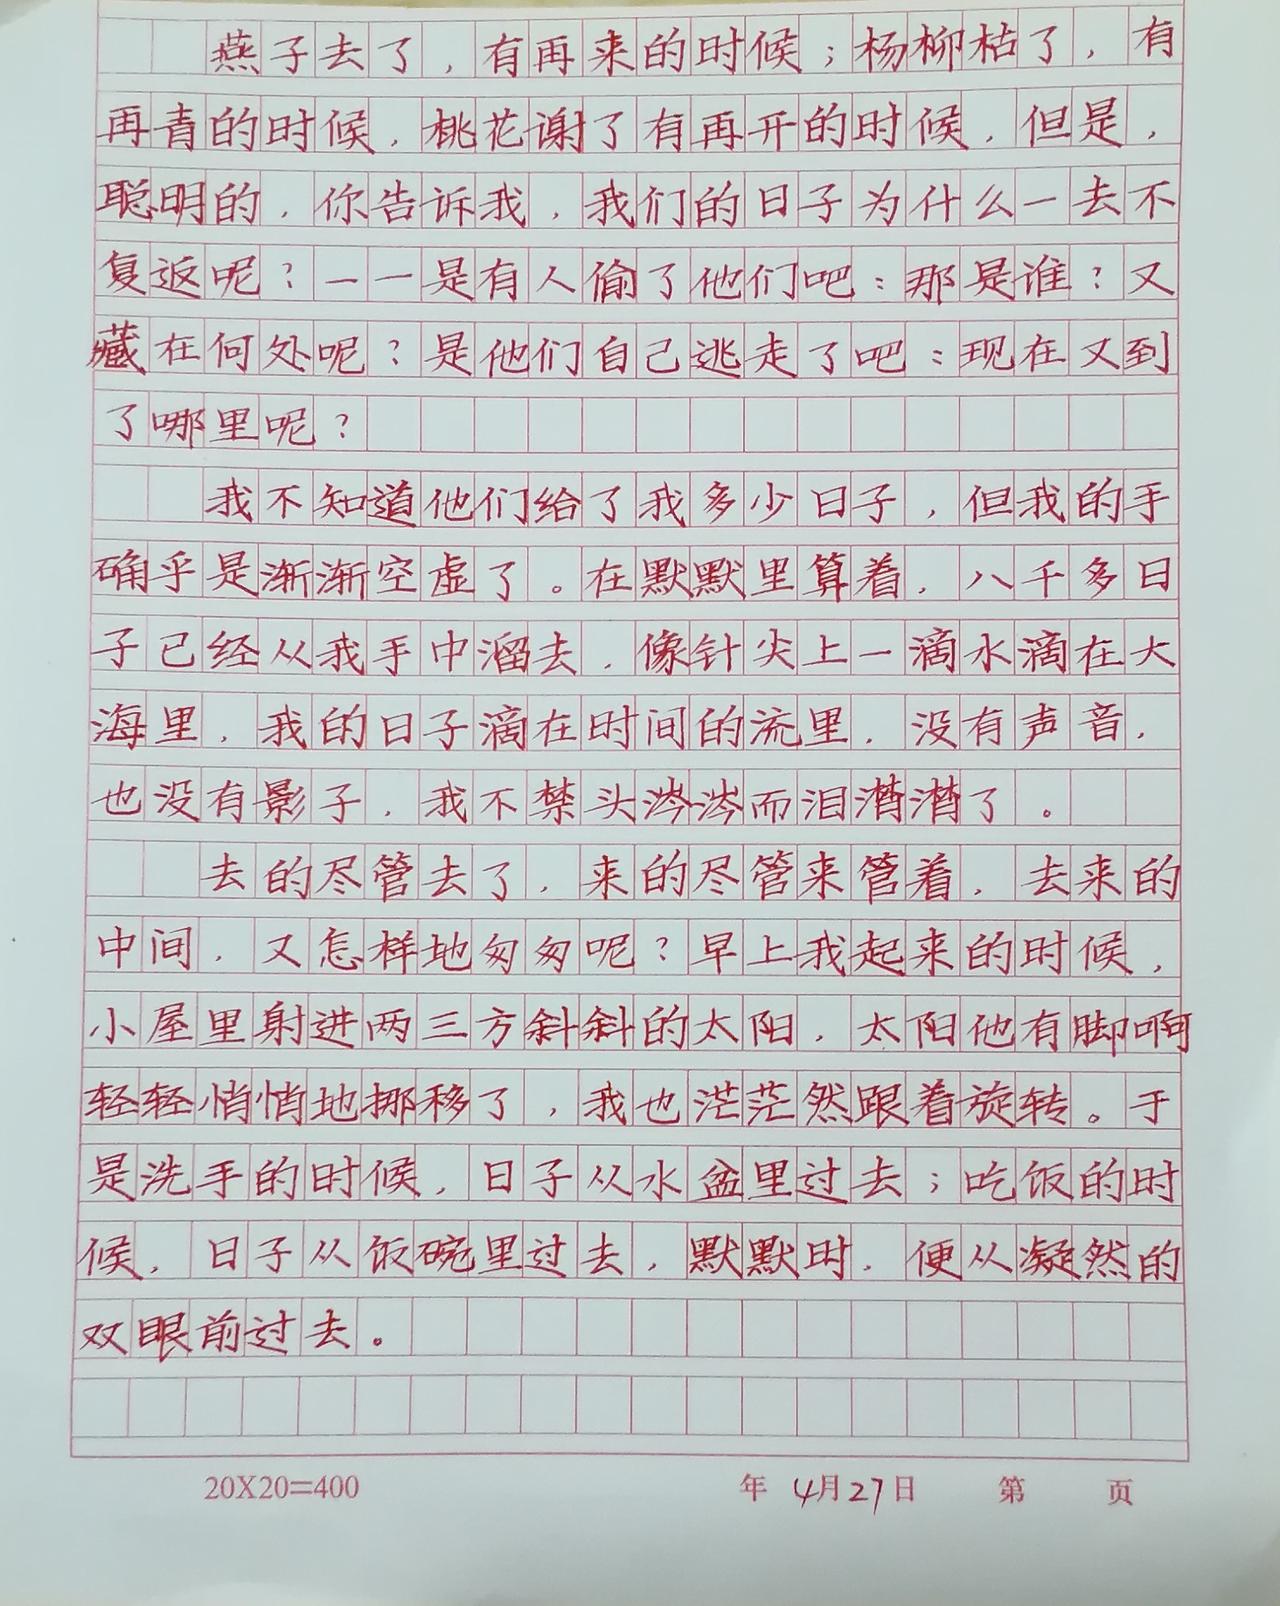 燕子去了，有再来的时候；杨柳枯了，有
再青的时候，桃花谢了有再开的时候，但是，
聪明的，你告诉我，我们的日子为什么一去不
复返呢？——是有人偷了他们吧：那是谁？又
藏在何处呢？是他们自己逃走了吧：现在又到
了哪里呢？
我不知道他们给了我多少日子，但我的手
确乎是渐渐空虚了。在默默里算着，八千多日
子已经从我手中溜去，像针尖上一滴水滴在大
海里，我的日子滴在时间的流里，没有声音，
也没有影子，我不禁头涔涔而泪潸潸了。
去的尽管去了，来的尽管来管着，去来的
中间，又怎样地匆匆呢？早上我起来的时候，
小屋里射进两三方斜斜的太阳，太阳他有脚啊
轻轻悄悄地挪移了，我也茫茫然跟着旋转。于
是洗手的时候，日子从水盆里过去；吃饭的时
候，日子从饭碗里过去，默默时，便从凝然的
双眼前过去。
20X20=400 年 4月27日 第 页